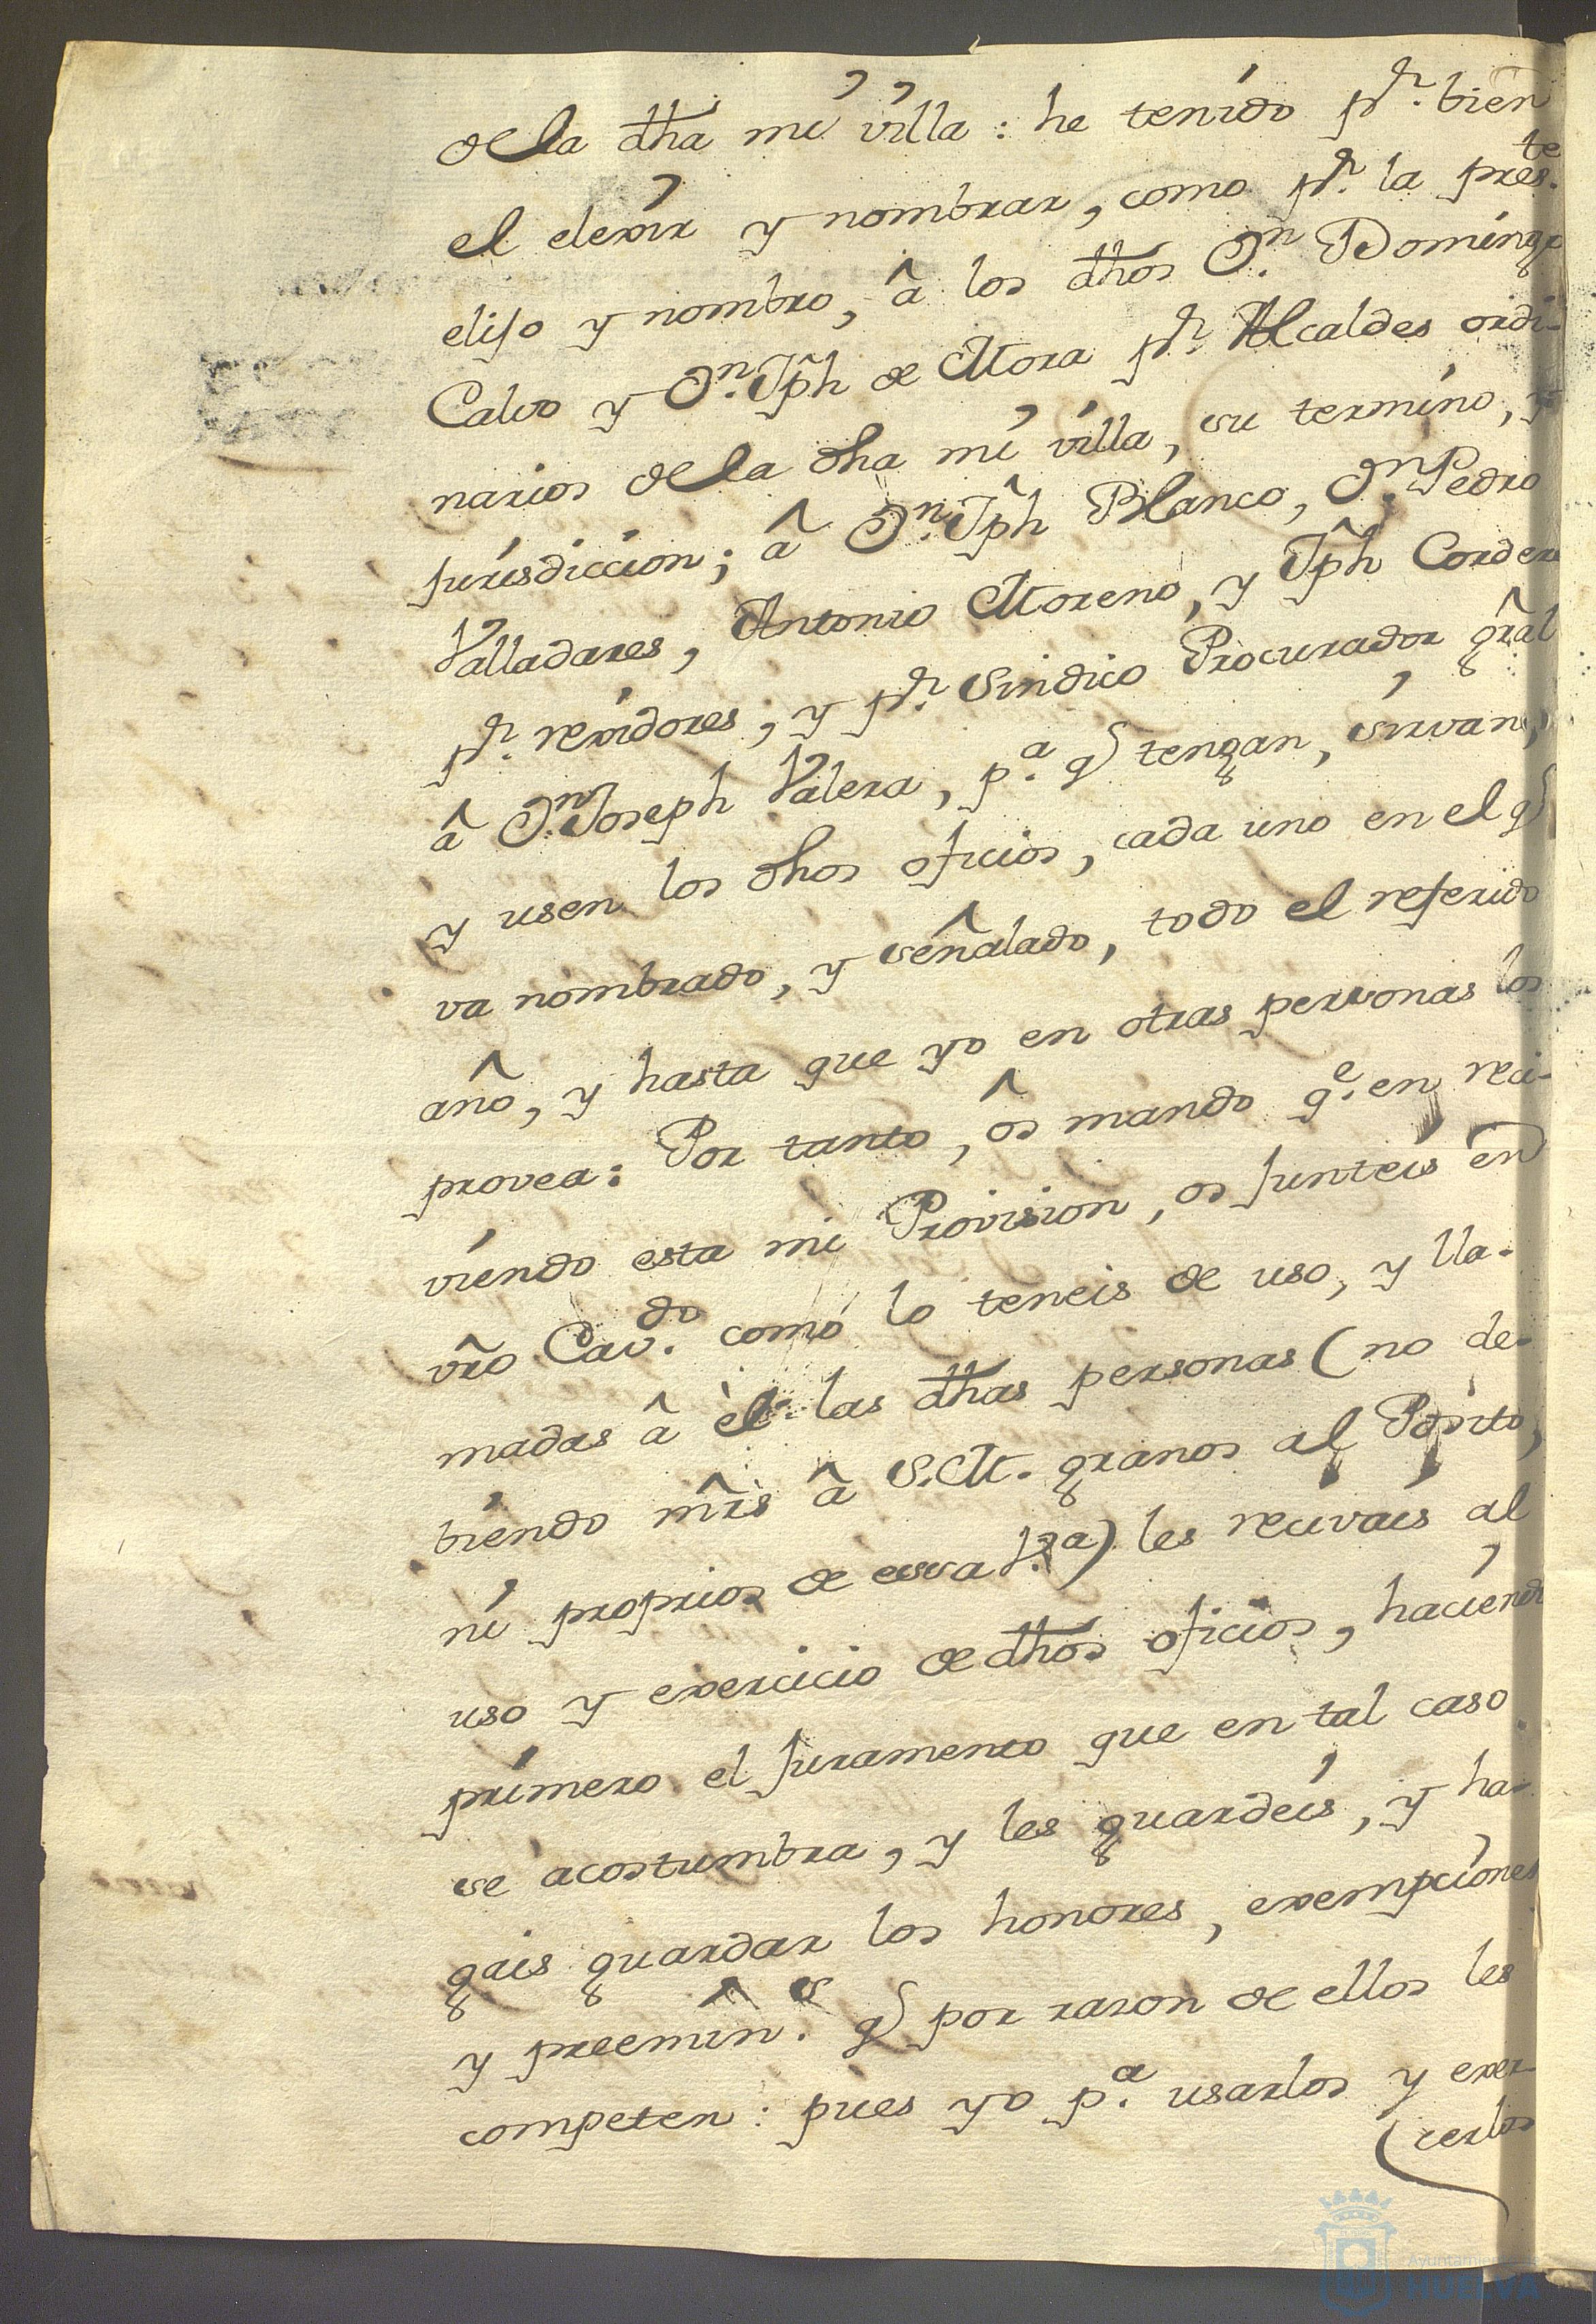 de la dha mi villa: he tenido pr. bien
el elexir y nombrar, como pr. la preste.
elijo y nombro, â los dhos Dn. Domingo
Calvo y Dn. Jph de Mora pr. Alcaldes ordi-
narios de la dha mi villa, su termino, y
jurisdiccion; â Dn. Jph Blanco, Dn. Pedro
Valladares, Antonio Moreno, y Jph Cordero
pr. rexidores; y pr. Sindico Procurador gral
â Dn. Joseph Valera, pa. q tengan, sirvan,
y usen los dhos oficios, cada uno en el q
va nombrado, y señalado, todo el referido
año, y hasta que yo en otras personas los
provea: Por tanto, ôs mando qe. en reci-
viendo esta mi Provision, os junteis en
vro Cavdo. como lo teneis de uso, y lla-
madas â èl las dhas personas (no de-
biendo mrs â S.M. granos al Posito,
ni proprios de essa Va.) les recivais al
uso y exercicio de dhos oficios, haciendo
primero el juramento que en tal caso
se acostumbra, y les guardeis, y ha-
gais guardar los honores, exempciones
y preemins. q por razon de ellos les
competen: pues yo pa. usarlos y exer-
(cerlos
Ayuntamie
HUELVA